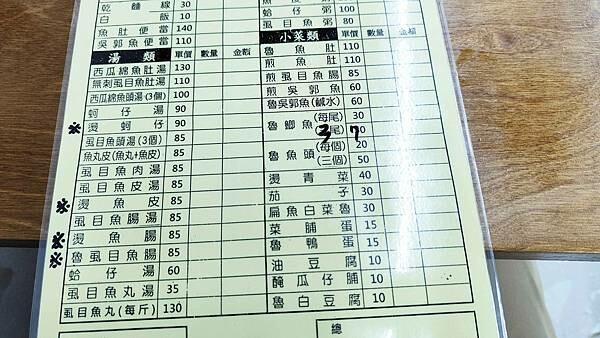 乾麵線 30
白飯 10
魚肚便當 140
吳郭魚便當 110
湯類 單價 數量 金額
西瓜綿魚肚湯 130
無刺虱目魚肚湯 110
西瓜綿魚頭湯(3個) 100
蚵仔湯 90
燙蚵仔 90
虱目魚頭湯(3個) 85
魚丸皮(魚丸+魚皮) 85
虱目魚肉湯 85
虱目魚皮湯 85
燙魚皮 85
虱目魚腸湯 85
燙魚腸 85
魯虱目魚腸 85
蛤仔湯 60
虱目魚丸湯 35
虱目魚丸(每斤) 130
蛤仔粥 100
虱目魚粥 80
小菜類 單價 數量 金額
魯魚肚 110
煎魚肚 110
煎虱目魚腸 85
煎吳郭魚 60
魯吳郭魚(鹹水) 60
魯鯽魚(每尾) 30
3 7
魯魚頭(每個) 20
(三個) 50
燙青菜 40
茄子 30
扁魚白菜魯 30
菜脯蛋 15
魯鴨蛋 15
油豆腐 10
醃瓜仔脯 10
魯白豆腐 10
總